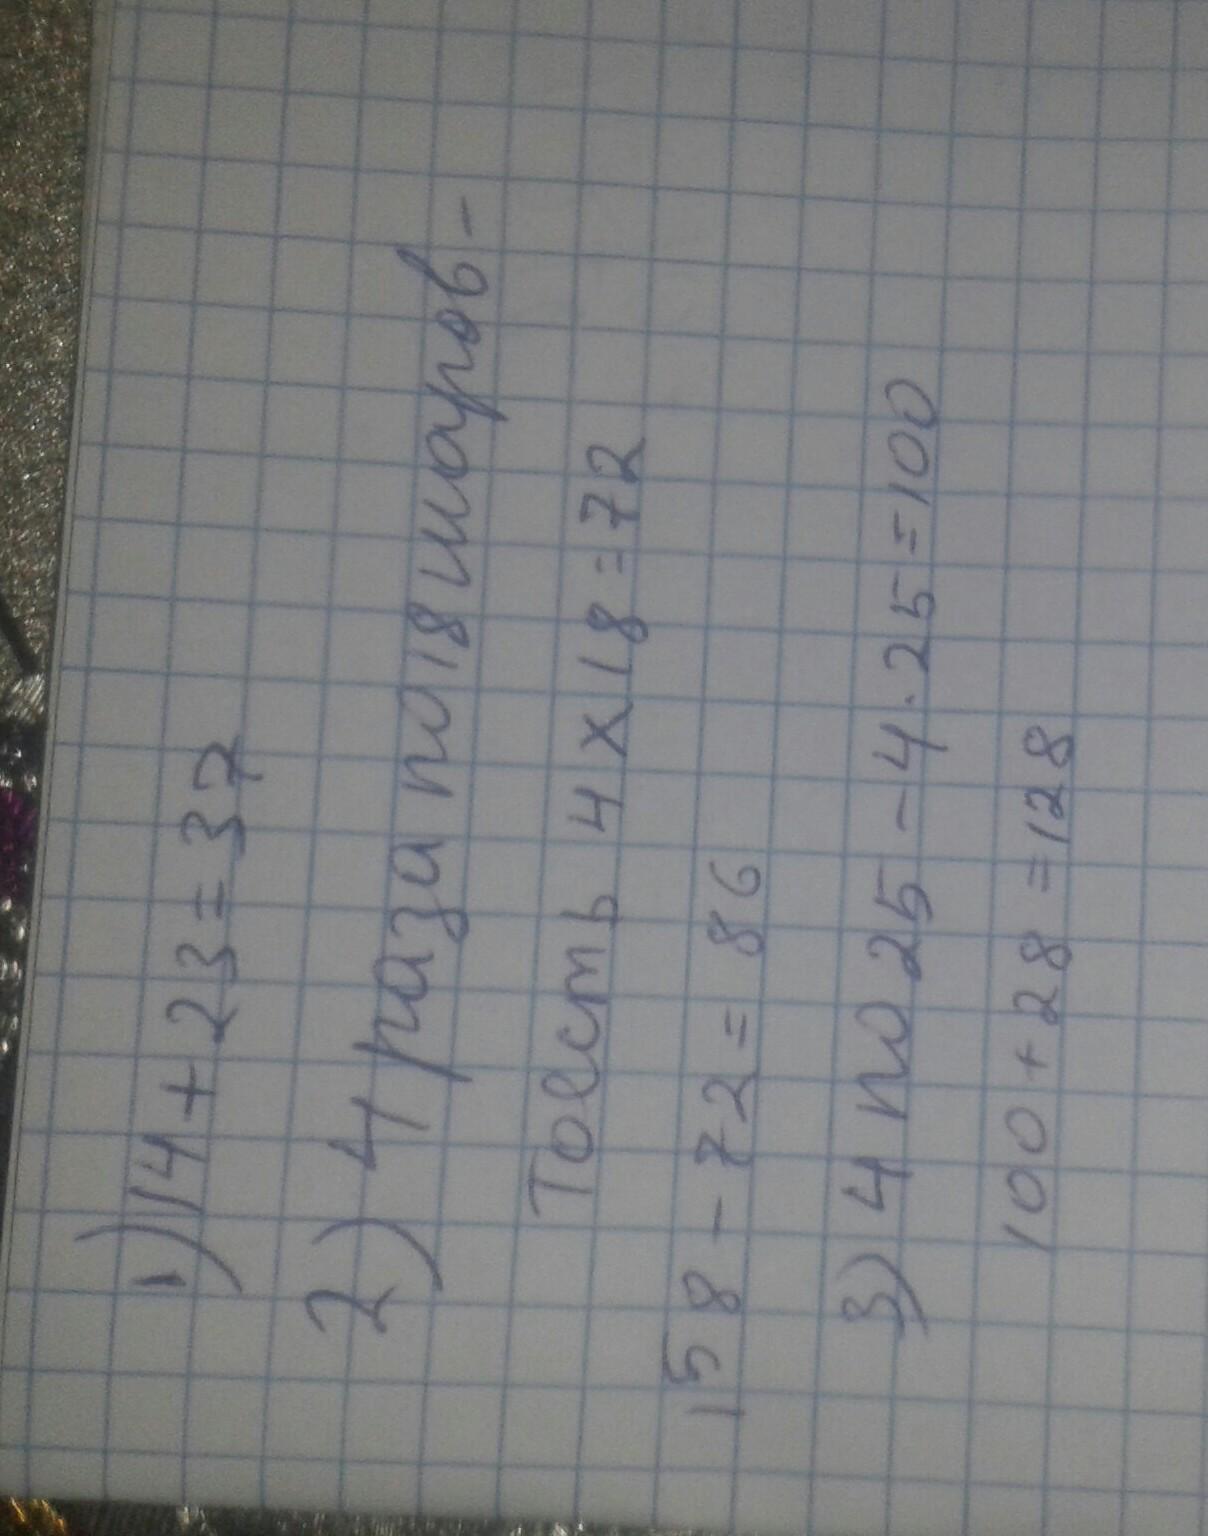 1) 14 + 23 = 37
2) 4 раза по 18 шаров -
Тоесть 4 x 18 = 72
158 - 72 = 86
3) 4 по 25 - 4 . 25 = 100
100 + 28 = 128